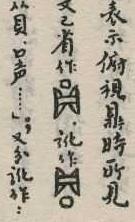 表示俯視鼎時所見
文已省作 訛作
从貝口声……，又分訛作：